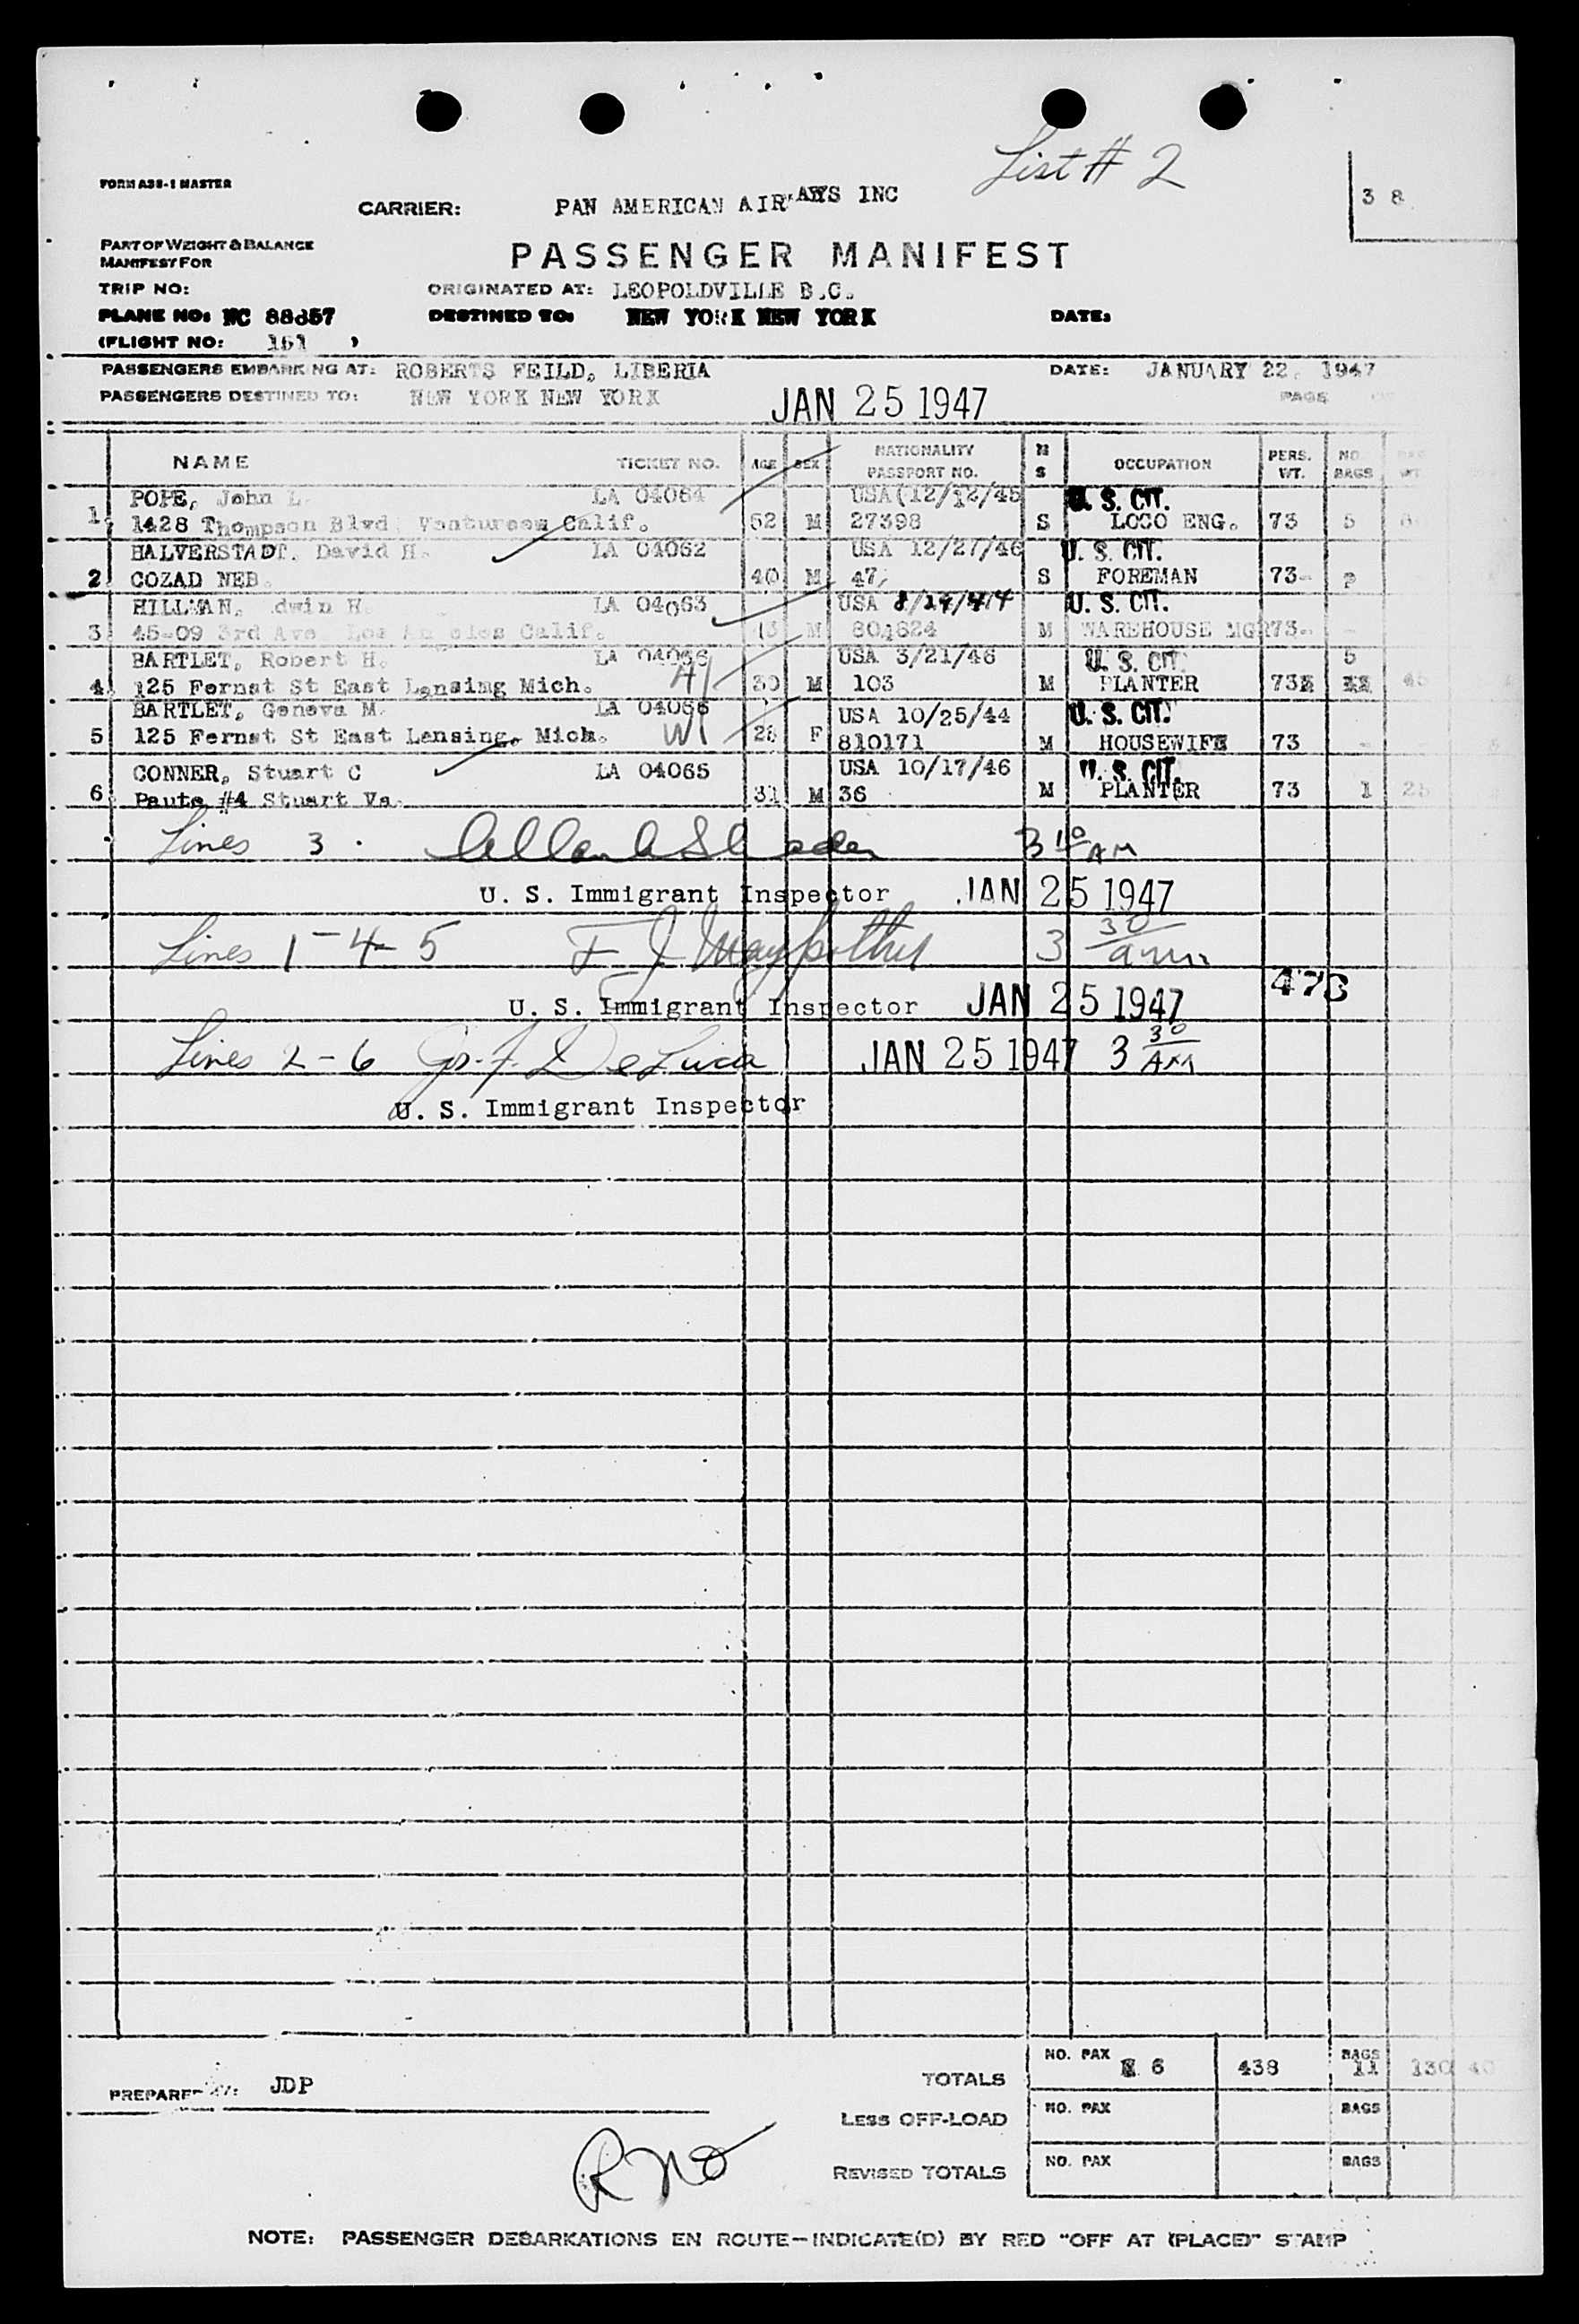 List # 2
FORM ASS-1 MASTER
3 8
CARRIER: PAN AMERICAN AIR AYS INC
PART OF WEIGHT & BALANCE
MANIFEST FOR
PASSENGER MANIFEST
TRIP NO: ORIGINATED AT: LEOPOLDVILLE B.C.
PLANE NO: NC 88857 DESTINED TO: NEW YORK NEW YORK DATE:
(FLIGHT NO: 161 )
PASSENGERS EMBARKING AT: ROBERTS FEILD, LIBERIA DATE: JANUARY 22, 1947
PASSENGERS DESTINED TO: NEW YORK NEW YORK JAN 25 1947 PAGE
NAME TICKET NO. AGE SEX NATIONALITY PASSPORT NO. M S OCCUPATION PERS. WT. NO. BAGS
POPE, John L. LA 04064 USA (12/12/45 U. S. CIT.
1. 1428 Thompson Blvd Calif. 52 M 27398 S LOCO ENG. 73 5
HALVERSTADT, David H. LA 04062 USA 12/27/46 U. S. CIT.
2 COZAD NEB. 40 M 47, S FOREMAN 73
HILLMAN, dwin H. LA 04063 USA 8/24/44 U. S. CIT.
3 45-09 3rd Ave Los Angeles Calif. 43 M 804824 M WAREHOUSE MGR 73
BARTLET, Robert H. LA 04056 USA 3/21/46 U. S. CIT. 5
4 125 Fernst St East Lansing Mich. 30 M 103 M PLANTER 73
BARTLET, Geneva M. LA 04056 USA 10/25/44 U. S. CIT.
5 125 Fernst St East Lansing, Mich. 28 F 810171 M HOUSEWIFE 73
CONNER, Stuart C LA 04065 USA 10/17/46 U. S. CIT.
6 Paute #4 Stuart Va. 31 M 36 M PLANTER 73 1 25
Lines 3 . 3 10 AM
U. S. Immigrant Inspector JAN 25 1947
Lines 1-4-5 F J 3 30 am
473
U. S. Immigrant Inspector JAN 25 1947
Lines 2-6 De Lucca JAN 25 1947 3 30 AM
U. S. Immigrant Inspector
PREPARED BY: JDP
TOTALS NO. PAX 6 438 BAGS 11 130 40
LESS OFF-LOAD NO. PAX BAGS
REVISED TOTALS NO. PAX BAGS
NOTE: PASSENGER DEBARKATIONS EN ROUTE—INDICATE(D) BY RED "OFF AT (PLACE)" STAMP